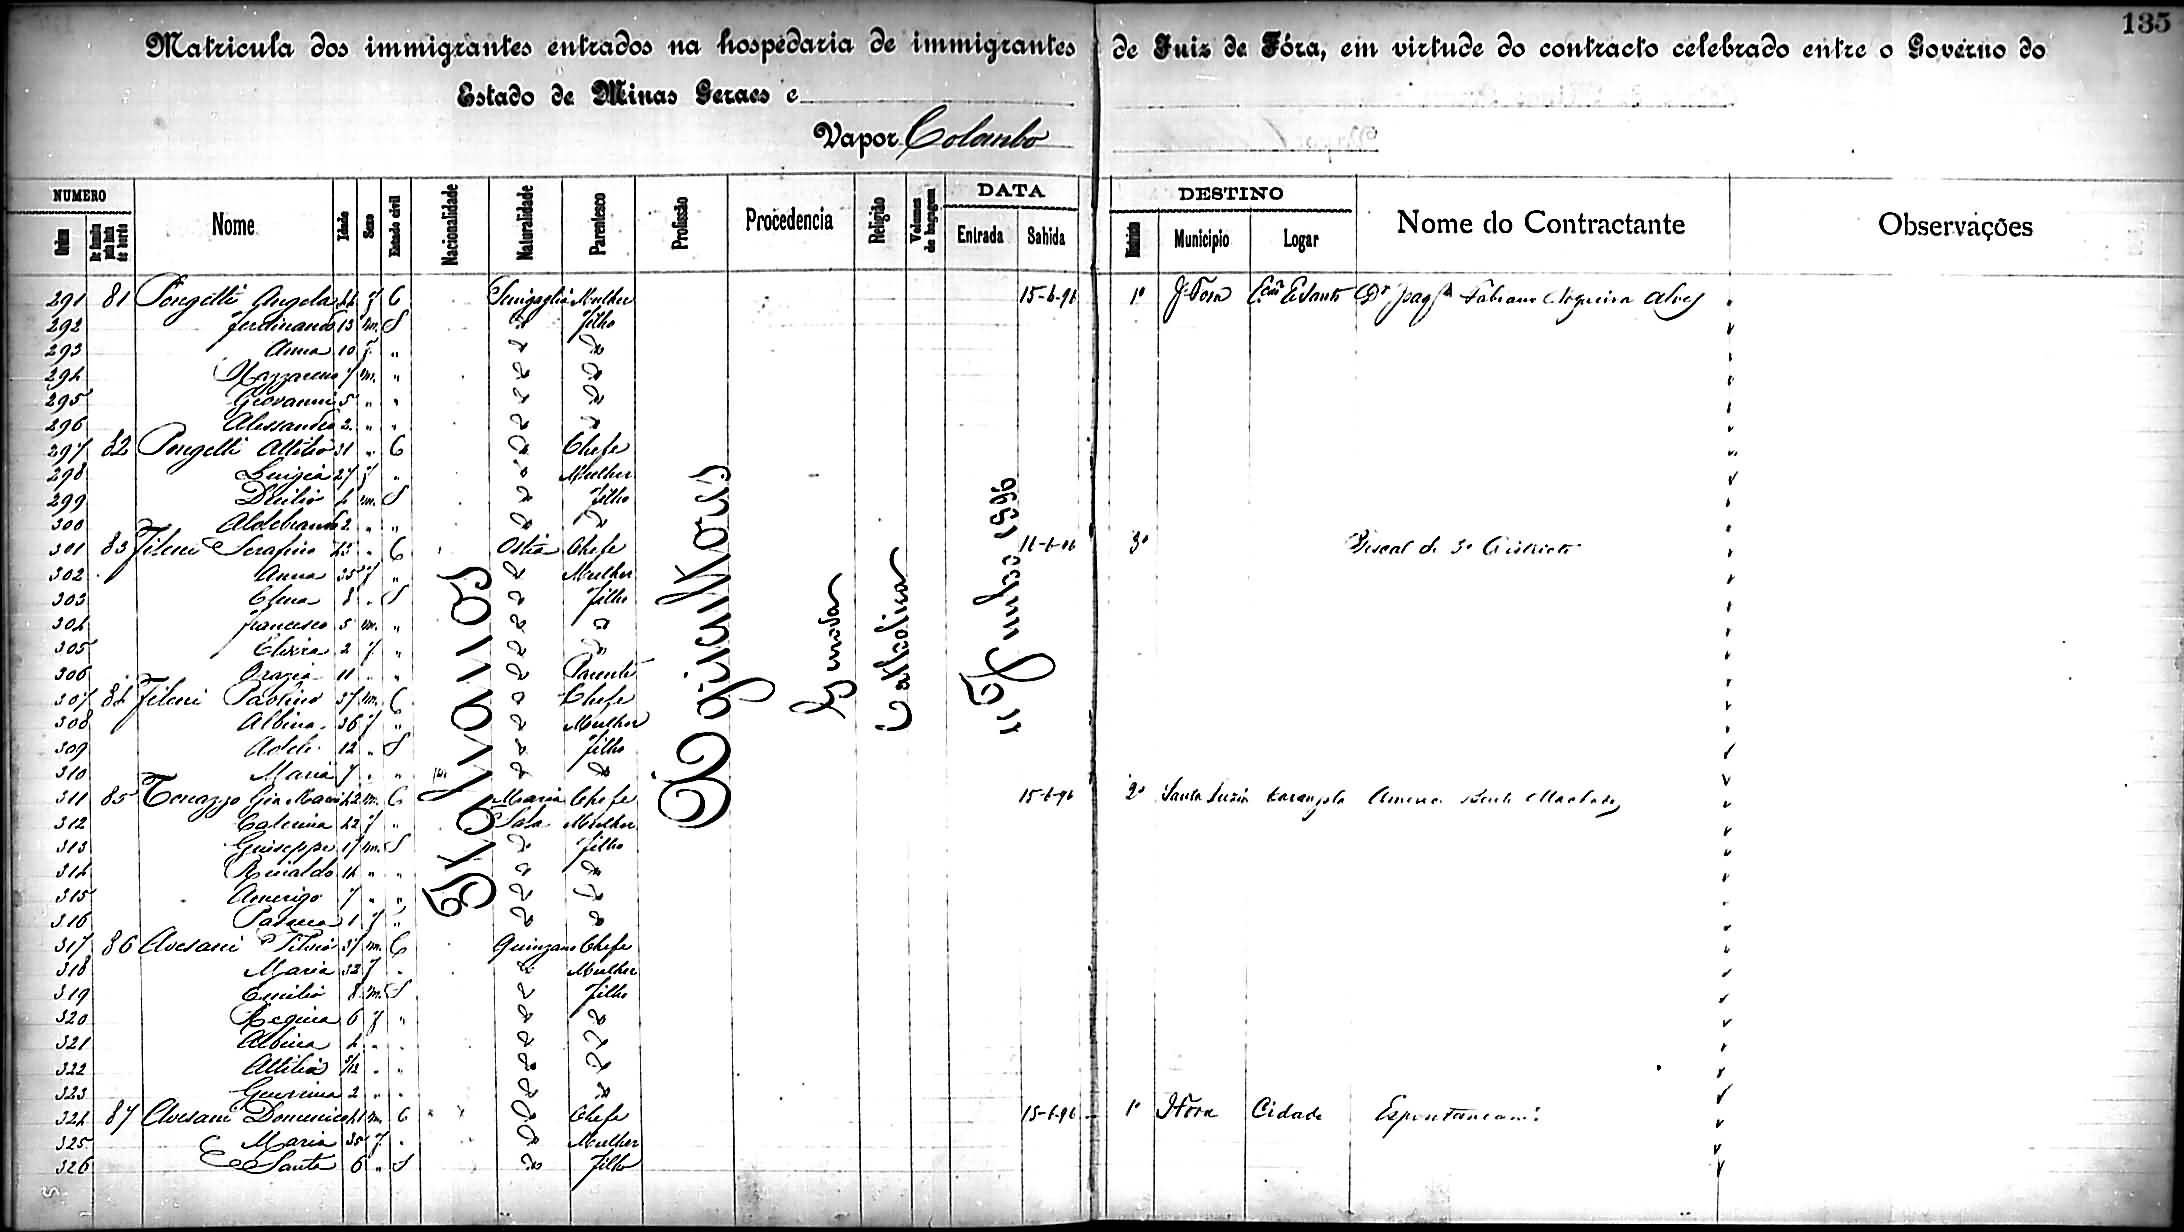 135
Matricula dos immigrantes entrados na hospedaria de immigrantes de Juiz de Fóra, em virtude do contracto celebrado entre o Governo do
Estado de Minas Geraes e
Vapor Colombo
NUMERO Nome Idade Sexo Estado civil Nacionalidade Naturalidade Parentesco Profissão Procedencia Religião Volumes de bagagem DATA DESTINO Nome do Contractante Observações
Ordem De familia pela lista de bordo Entrada Sahida Districto Municipio Logar
Italianos Agricultores Genova Catholica 11 Junho 1896
291 81 Pongetti Angela 44 f C Senigaglia Mulher 15-6-96 1º J. Fora Dr Fabiano Nogueira Alves
292 Ferdinando 13 m. S " Filho
293 Anna 10 f. " " "
294 Nazzareno 7 m. " " "
295 Giovanni 5 " " " "
296 Alessandro 2 " " " "
297 82 Pongetti Attilio 31 " C " Chefe
298 Luigia 27 f " " Mulher
299 Duilio 4 m. S " Filho
300 Aldebrando 2 " " " "
301 83 Fileni Serafino 43 " C Ostra Chefe 11-6-96 3º Fiscal do 3º Districto
302 Anna 35 f " " Mulher
303 Elena 8 " S " Filho
304 Francesco 5 m. " " "
305 Elvira 2 f. " " "
306 Orazia 11 " " " Parente
307 84 Fileni Paolino 37 m. C " Chefe
308 Albina 36 f " " Mulher
309 Adele 12 " S " Filho
310 Maria 7 " " " "
311 85 Tenazzo Gio Maria 42 m. C Maria Chefe 15-6-96 2º Santa Luzia Carangola Bento Machado
312 Caterina 42 f " Sala Mulher
313 Guiseppe 17 m. S " Filho
314 Rinaldo 14 " " " "
315 Amerigo 7 " " " "
316 1 f " " "
317 86 Avesani Silvio 37 m. C Quinzano Chefe
318 Maria 32 f " " Mulher
319 Emilio 8 m. S " Filho
320 Regina 6 f " " "
321 Albina 4 " " " "
322 Attilia " " " "
323 Guerrina 2 " " " "
324 87 Avesani Domenico 41 m. C " Chefe 15-6-96 1º J. Fora Cidade Espontaneam.
325 Maria 35 f. " " Mulher
326 Santa 6 " S " Filho